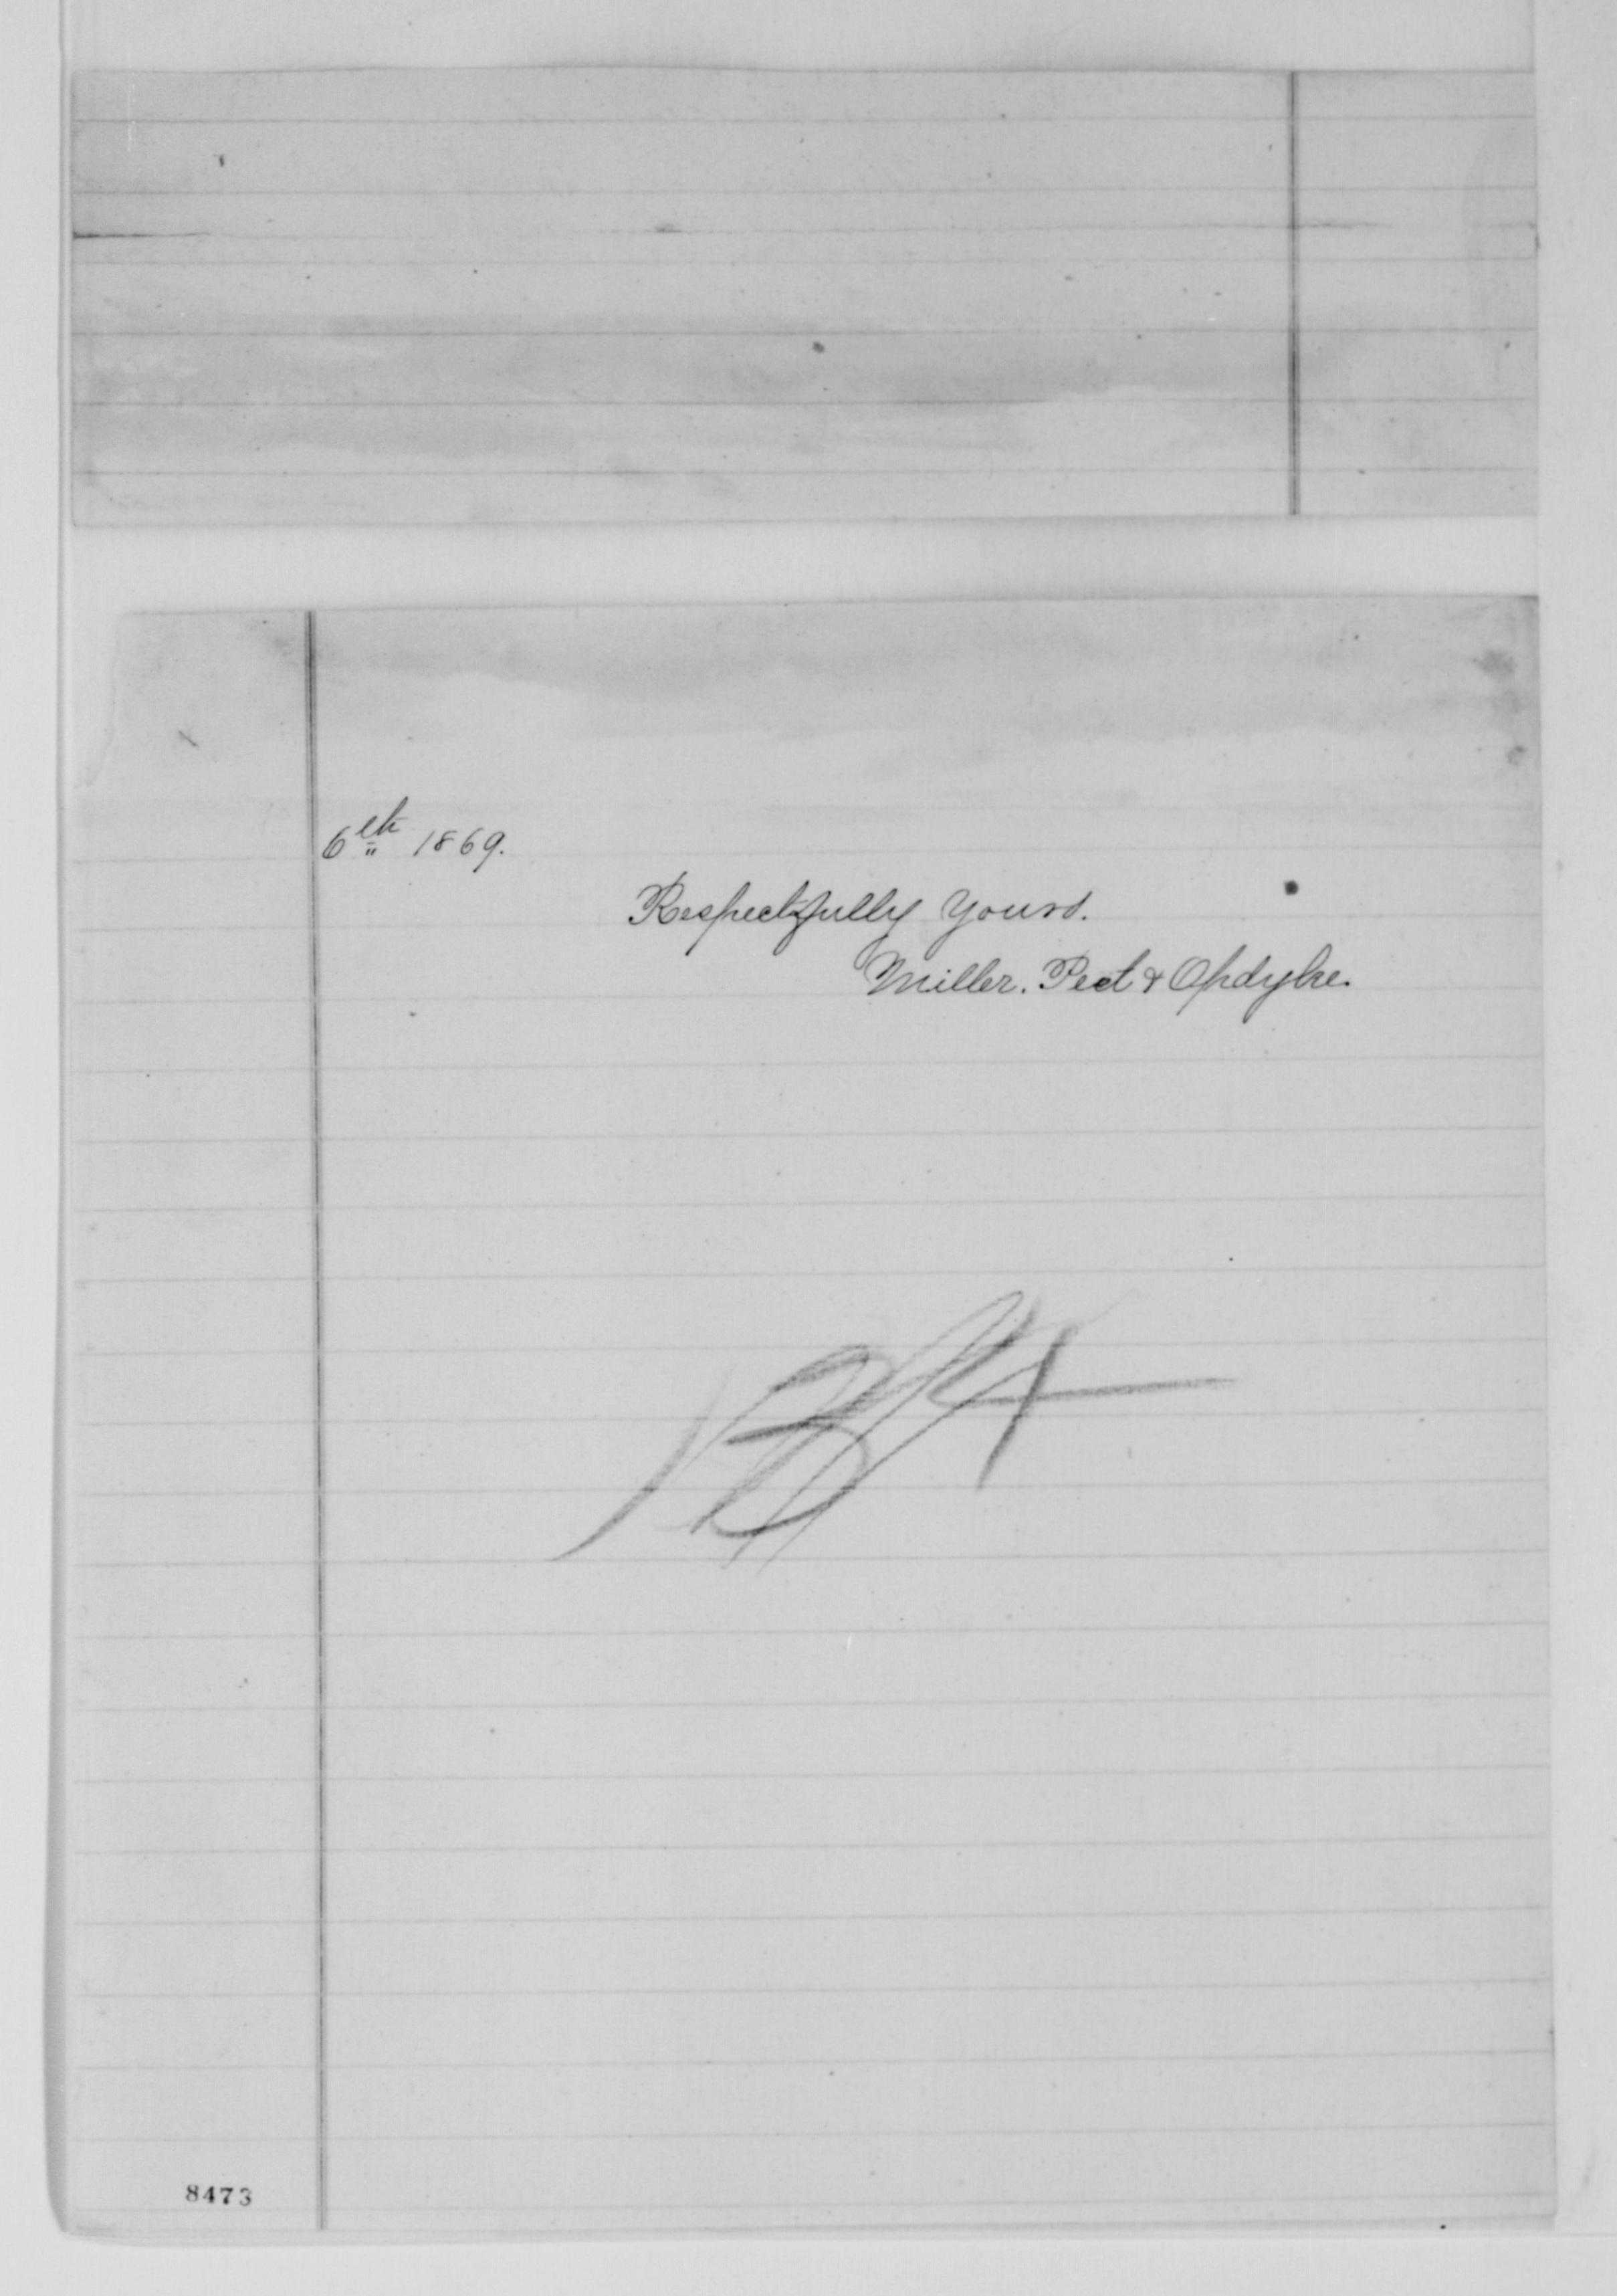 6th 1869.
Respectfully Yours.
Miller. Peet & Opdyke.
8473